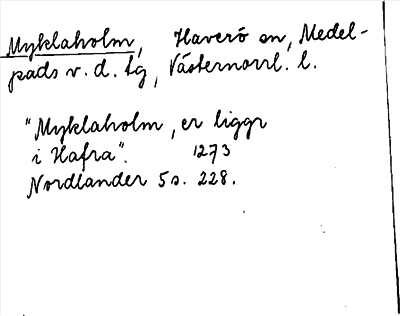 Myklaholm, Haverö sn, Medel-
pads v. d. tg, Västernorrl. l.
"Myklaholm, er liggr
i Hafra". 1273
Nordlander 5 s. 228.